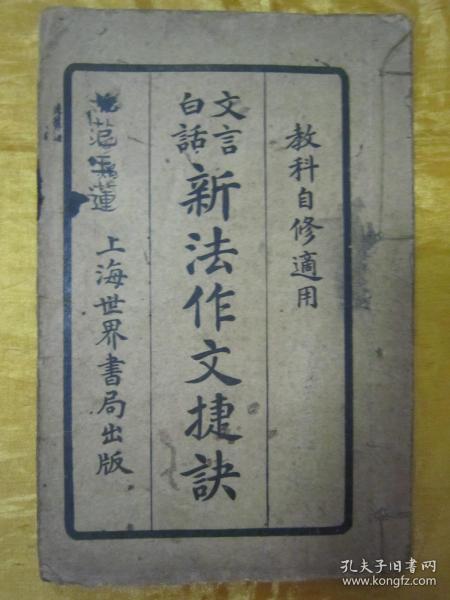 教科自修適用
文言
白話
新法作文捷訣
上海世界書局出版
范
蓮
孔夫子旧书网
www.kongfz.com